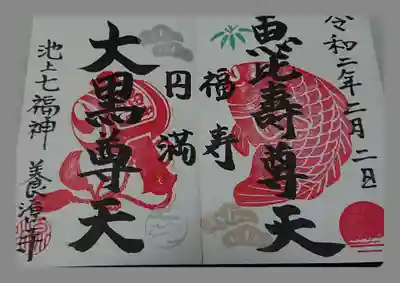 令和二年二月二日
恵比寿尊天
福寿
円満
大黒尊天
池上七福神
養源寺